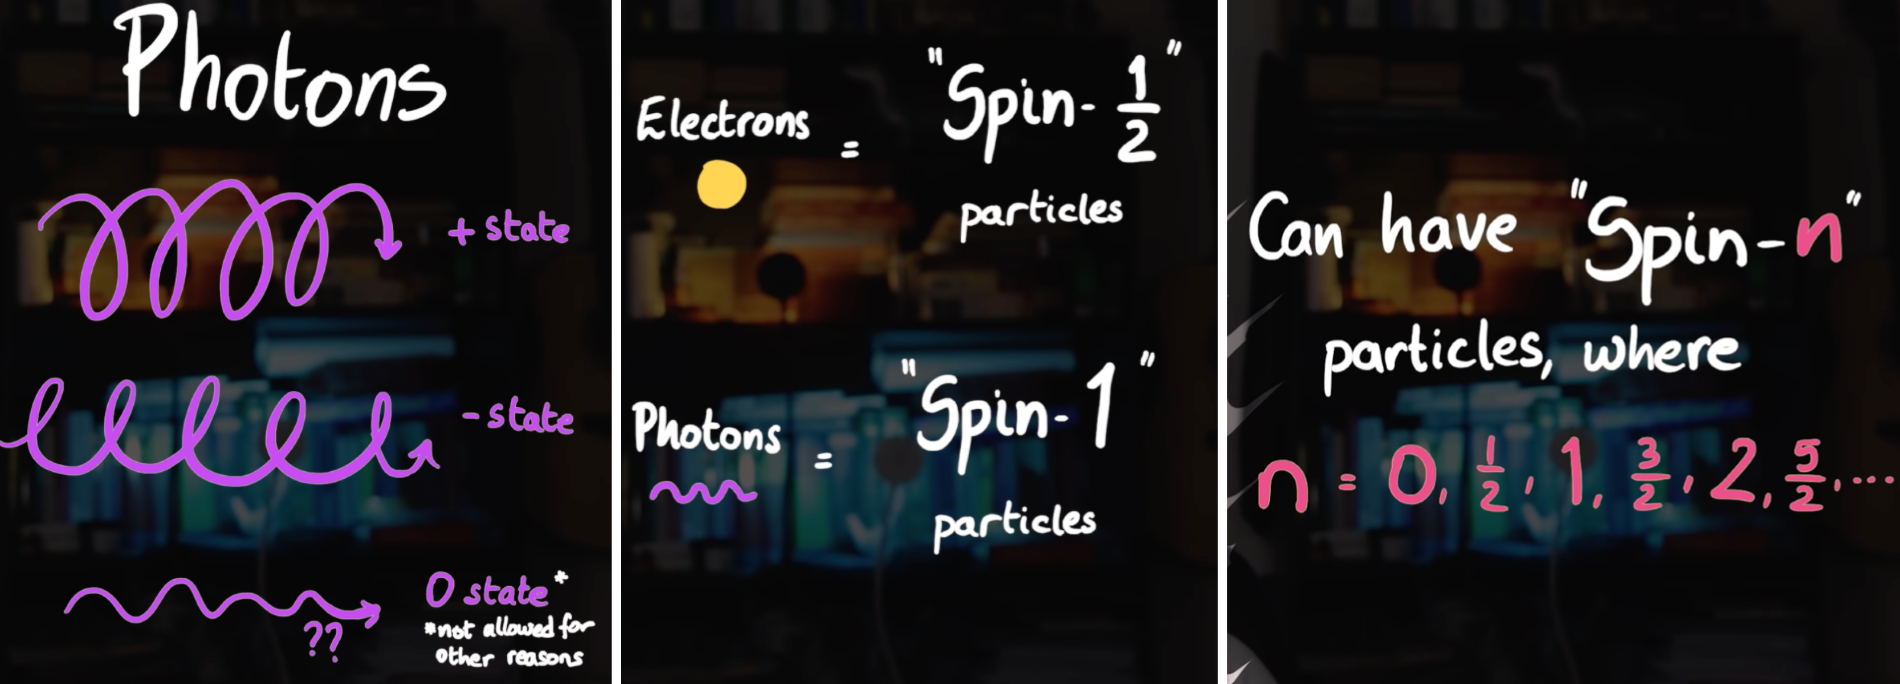 Photons
+ state
- state
0 state*
??
*not allowed for
other reasons
Electrons = "Spin-1/2"
particles
Photons = "Spin-1"
particles
Can have "Spin-n"
particles, where
n = 0, 1/2, 1, 3/2, 2, 5/2, ...